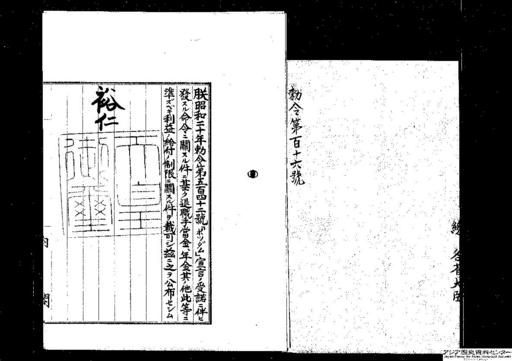 勅令第百十六號
朕昭和二十年勅令第五百四十二號「ポツダム」宣言ノ受諾ニ伴ヒ
發スル命令ニ關スル件ニ基ク退職手當金、年金其ノ他此等ニ
準ズベキ利益ノ給付ノ制限ニ關スル件ヲ裁可シ茲ニ之ヲ公布セシム
裕仁
天皇
御璽
内閣
アジア歴史資料センター